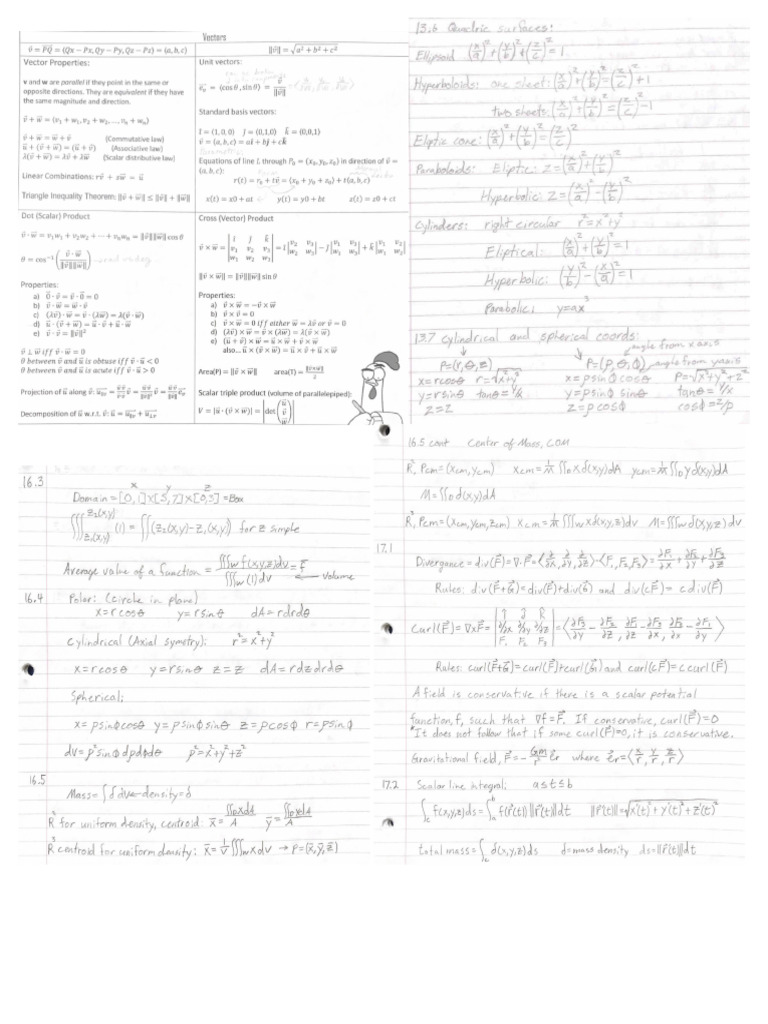 Vectors
v⃗ = P⃗Q⃗ = (Qx − Px, Qy − Py, Qz − Pz) = (a, b, c)
‖v⃗‖ = √(a² + b² + c²)
Vector Properties:
v and w are parallel if they point in the same or
opposite directions. They are equivalent if they have
the same magnitude and direction.
v⃗ + w⃗ = (v₁ + w₁, v₂ + w₂, ..., vₙ + wₙ)
v⃗ + w⃗ = w⃗ + v⃗ (Commutative law)
u⃗ + (v⃗ + w⃗) = (u⃗ + v⃗) (Associative law)
λ(v⃗ + w⃗) = λv⃗ + λw⃗ (Scalar distributive law)
Linear Combinations: rv⃗ + sw⃗ = u⃗
Triangle Inequality Theorem: ‖v⃗ + w⃗‖ ≤ ‖v⃗‖ + ‖w⃗‖
Unit vectors:
e⃗ᵥ = (cos θ, sin θ) = v⃗/‖v⃗‖
Standard basis vectors:
î = (1, 0, 0) ĵ = (0,1,0) k̂ = (0,0,1)
v⃗ = (a, b, c) = aî + bĵ + ck̂
Equations of line L through P₀ = (x₀, y₀, z₀) in direction of v⃗ =
(a, b, c):
r(t) = r₀ + tv⃗ = (x₀ + y₀ + z₀) + t(a, b, c)
x(t) = x0 + at y(t) = y0 + bt z(t) = z0 + ct
Dot (Scalar) Product
v⃗ · w⃗ = v₁w₁ + v₂w₂ + ··· + vₙwₙ = ‖v⃗‖‖w⃗‖ cos θ
θ = cos⁻¹(v⃗ · w⃗ / ‖v⃗‖‖w⃗‖)
Properties:
a) 0⃗ · v⃗ = v⃗ · 0⃗ = 0
b) v⃗ · w⃗ = w⃗ · v⃗
c) (λv⃗) · w⃗ = v⃗ · (λw⃗) = λ(v⃗ · w⃗)
d) u⃗ · (v⃗ + w⃗) = u⃗ · v⃗ + u⃗ · w⃗
e) v⃗ · v⃗ = ‖v⃗‖²
v⃗ ⊥ w⃗ iff v⃗ · w⃗ = 0
θ between v⃗ and u⃗ is obtuse iff v⃗ · u⃗ < 0
θ between v⃗ and u⃗ is acute iff v⃗ · u⃗ > 0
Projection of u⃗ along v⃗:
Decomposition of u⃗ w.r.t. v⃗:
Cross (Vector) Product
v⃗ × w⃗ = |î ĵ k̂; v₁ v₂ v₃; w₁ w₂ w₃| = î|v₂ v₃; w₂ w₃| − ĵ|v₁ v₃; w₁ w₃| + k̂|v₁ v₂; w₁ w₂|
‖v⃗ × w⃗‖ = ‖v⃗‖‖w⃗‖ sin θ
Properties:
a) v⃗ × w⃗ = −v⃗ × w⃗
b) v⃗ × v⃗ = 0
c) v⃗ × w⃗ = 0 iff either w⃗ = λv⃗ or v⃗ = 0
d) (λv⃗) × w⃗ = v⃗ × (λw⃗) = λ(v⃗ × w⃗)
e) (u⃗ + v⃗) × w⃗ = u⃗ × w⃗ + v⃗ × w⃗
also... u⃗ × (v⃗ × w⃗) = u⃗ × v⃗ + u⃗ × w⃗
Area(P) = ‖v⃗ × w⃗‖ area(T) = ‖v⃗×w⃗‖/2
Scalar triple product (volume of parallelepiped):
V = |u⃗ · (v⃗ × w⃗)| = |det(u⃗ v⃗ w⃗)|
13.6 Quadric surfaces:
Ellipsoid (x/a)² + (y/b)² + (z/c)² = 1
Hyperboloids: one sheet: (x/a)² + (y/b)² = (z/c)² + 1
two sheets: (x/a)² + (y/b)² = (z/c)² − 1
Eliptic cone: (x/a)² + (y/b)² = (z/c)²
Paraboloids: Eliptic: z = (x/a)² + (y/b)²
Hyperbolic: z = (x/a)² − (y/b)²
Cylinders: right circular r² = x² + y²
Elliptical: (x/a)² + (y/b)² = 1
Hyperbolic: (y/b)² − (x/a)² = 1
Parabolic: y = ax²
13.7 Cylindrical and spherical coords:
angle from x axis
P=(r,θ,z) P=(ρ,θ,φ) angle from y axis
x=rcosθ r=√(x²+y²) x=ρsinφcosθ ρ=√(x²+y²+z²)
y=rsinθ tanθ=y/x y=ρsinφ sinθ tanθ=y/x
z=z z=ρcosφ cosφ=z/ρ
16.3 x y z
Domain = [0,1]×[5,7]×[0,3] = Box
∭ (1) = ∬(z₂(x,y) − z₁(x,y)) for z simple
Average value of a function = ∭w f(x,y,z)dv / ∭w (1)dv = f̄ ← Volume
16.4 Polar: (circle in plane)
x=rcosθ y=rsinθ dA=rdrdθ
Cylindrical (Axial symetry): r²=x²+y²
x=rcosθ y=rsinθ z=z dA=rdzdrdθ
Spherical:
x=ρsinφcosθ y=ρsinφsinθ z=ρcosφ r=ρsinφ
dV=ρ²sinφdρdφdθ ρ²=x²+y²+z²
16.5
Mass = ∫δ dv ← density=δ
R² for uniform density, centroid: x̄ = ∬D x dA / A ȳ = ∬D y dA / A
R³ centroid for uniform density: x̄ = 1/V ∭w x dv → P=(x̄,ȳ,z̄)
16.5 cont Center of Mass, COM
R², Pcm=(xcm,ycm) xcm=1/M ∬D xδ(x,y)dA ycm=1/M ∬D yδ(x,y)dA
M=∬D δ(x,y)dA
R³, Pcm=(xcm,ycm,zcm) xcm=1/M ∭w xδ(x,y,z)dv M=∭w δ(x,y,z)dv
17.1
Divergance = div(F⃗) = ∇·F⃗ = ⟨∂/∂x, ∂/∂y, ∂/∂z⟩·⟨F₁,F₂,F₃⟩ = ∂F₁/∂x + ∂F₂/∂y + ∂F₃/∂z
Rules: div(F⃗+G⃗)=div(F⃗)+div(G⃗) and div(cF⃗)=c div(F⃗)
Curl(F⃗)=∇×F⃗= |î ĵ k̂; ∂/∂x ∂/∂y ∂/∂z; F₁ F₂ F₃| = ⟨∂F₃/∂y − ∂F₂/∂z, ∂F₁/∂z − ∂F₃/∂x, ∂F₂/∂x − ∂F₁/∂y⟩
Rules: curl(F⃗+G⃗)=curl(F⃗)+curl(G⃗) and curl(cF⃗)=c curl(F⃗)
A field is conservative if there is a scalar potential
function, f, such that ∇f=F⃗. If conservative, curl(F⃗)=0
*It does not follow that if some curl(F⃗)=0, it is conservative.
Gravitational field, F⃗ = −Gm/r² e⃗r where e⃗r=⟨x/r, y/r, z/r⟩
17.2 Scalar line integral: a≤t≤b
∫c f(x,y,z)ds = ∫ₐᵇ f(r⃗(t))‖r⃗'(t)‖dt ‖r⃗'(t)‖=√(x'(t)²+y'(t)²+z'(t)²)
total mass = ∫c δ(x,y,z)ds δ=mass density ds=‖r⃗'(t)‖dt